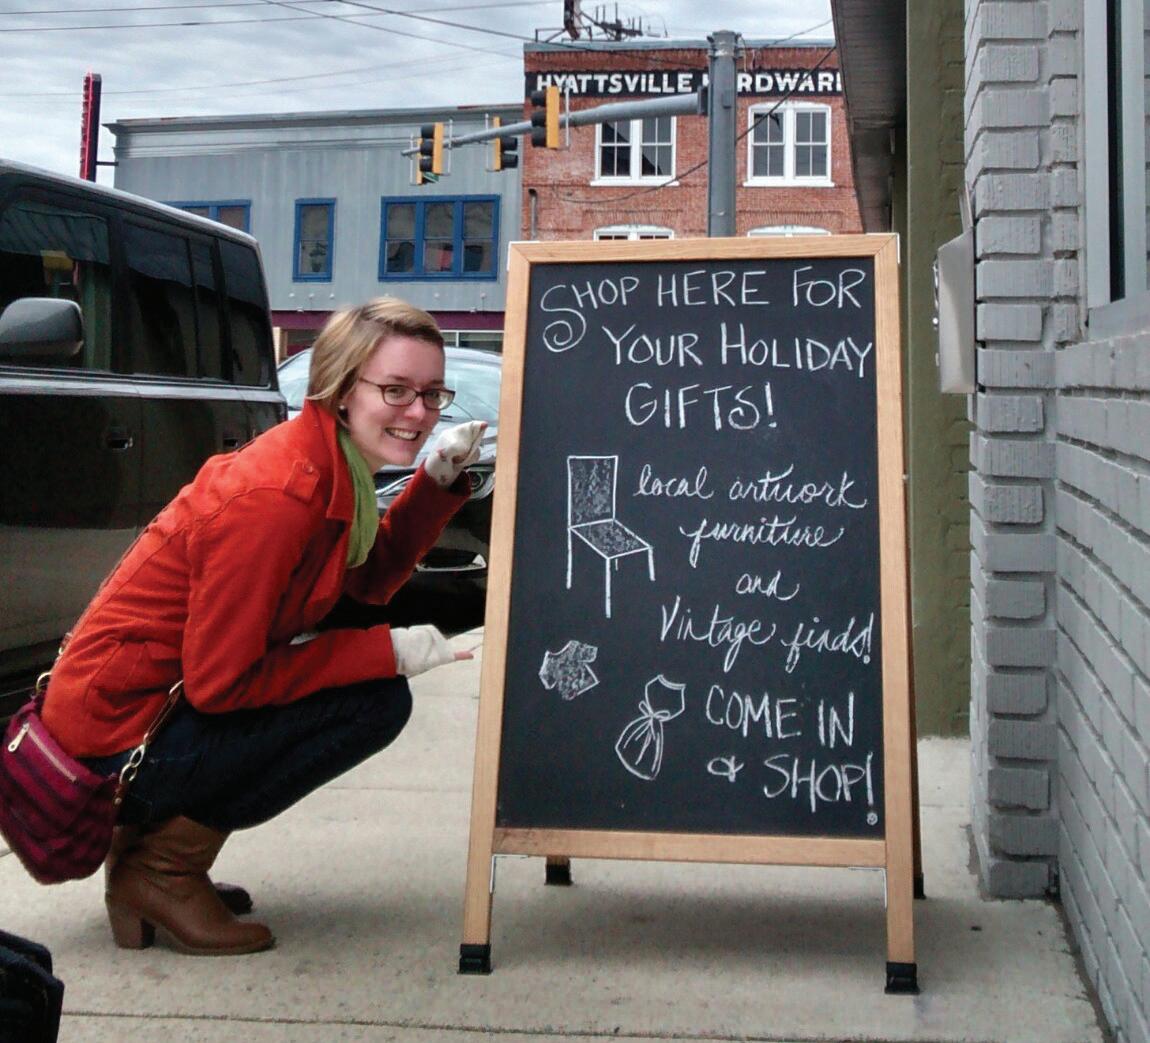 HYATTSVILLE HARDWARE
SHOP HERE FOR
YOUR HOLIDAY
GIFTS!
local artwork
furniture
and
Vintage finds!
COME IN
& SHOP!